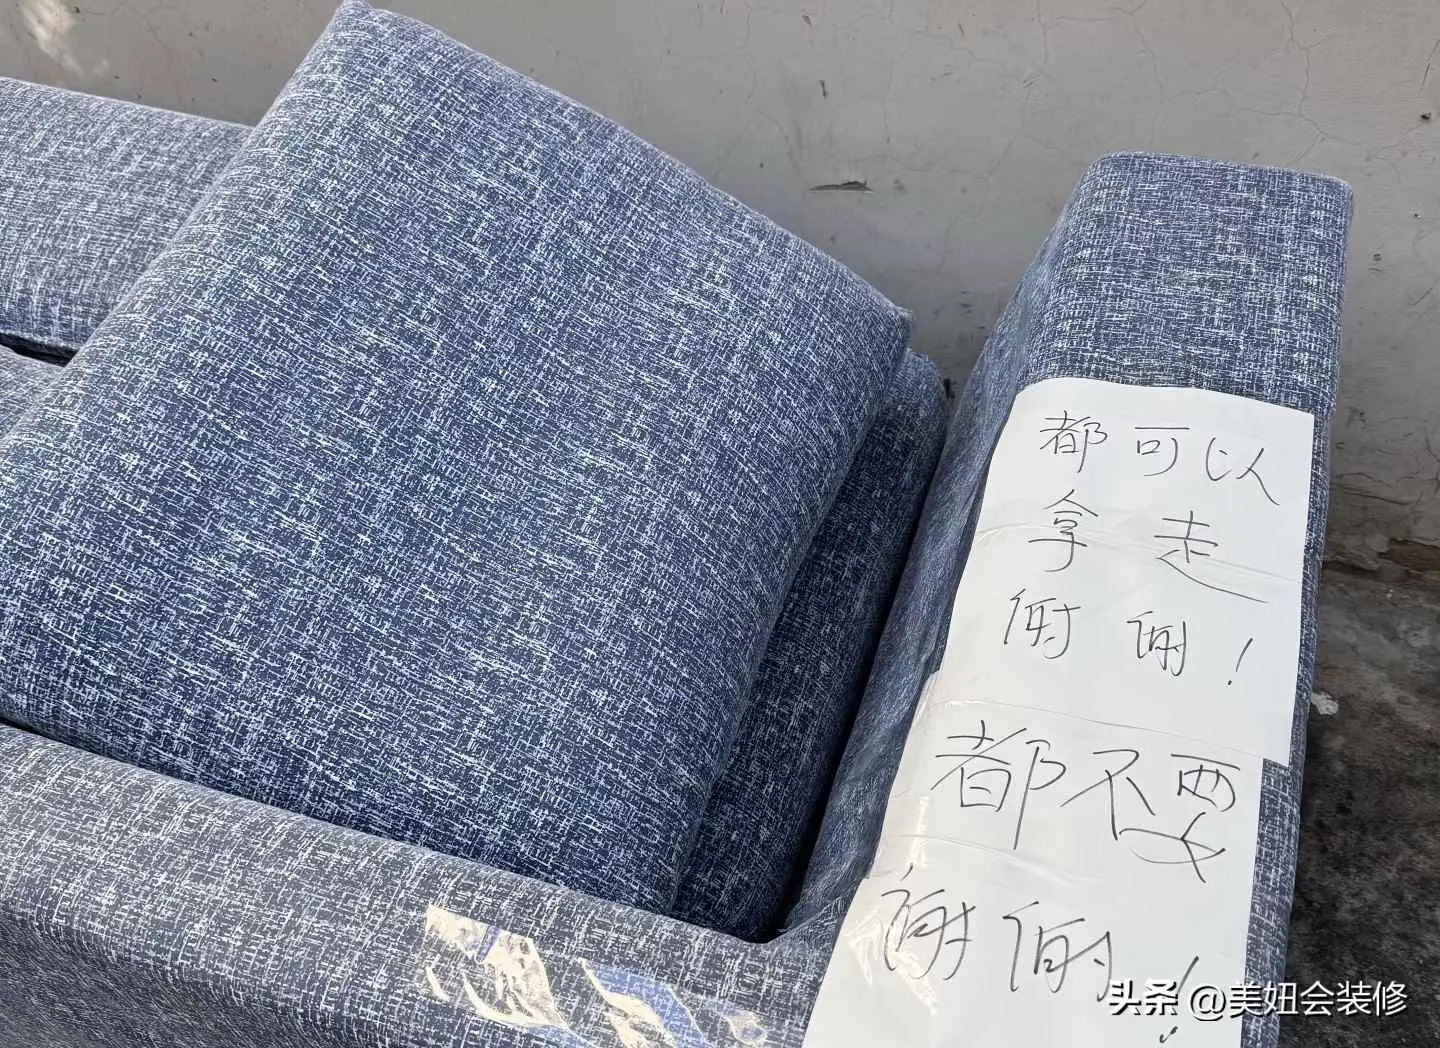 都可以
拿走
谢谢!
都不要
谢谢!
头条 @美妞会装修